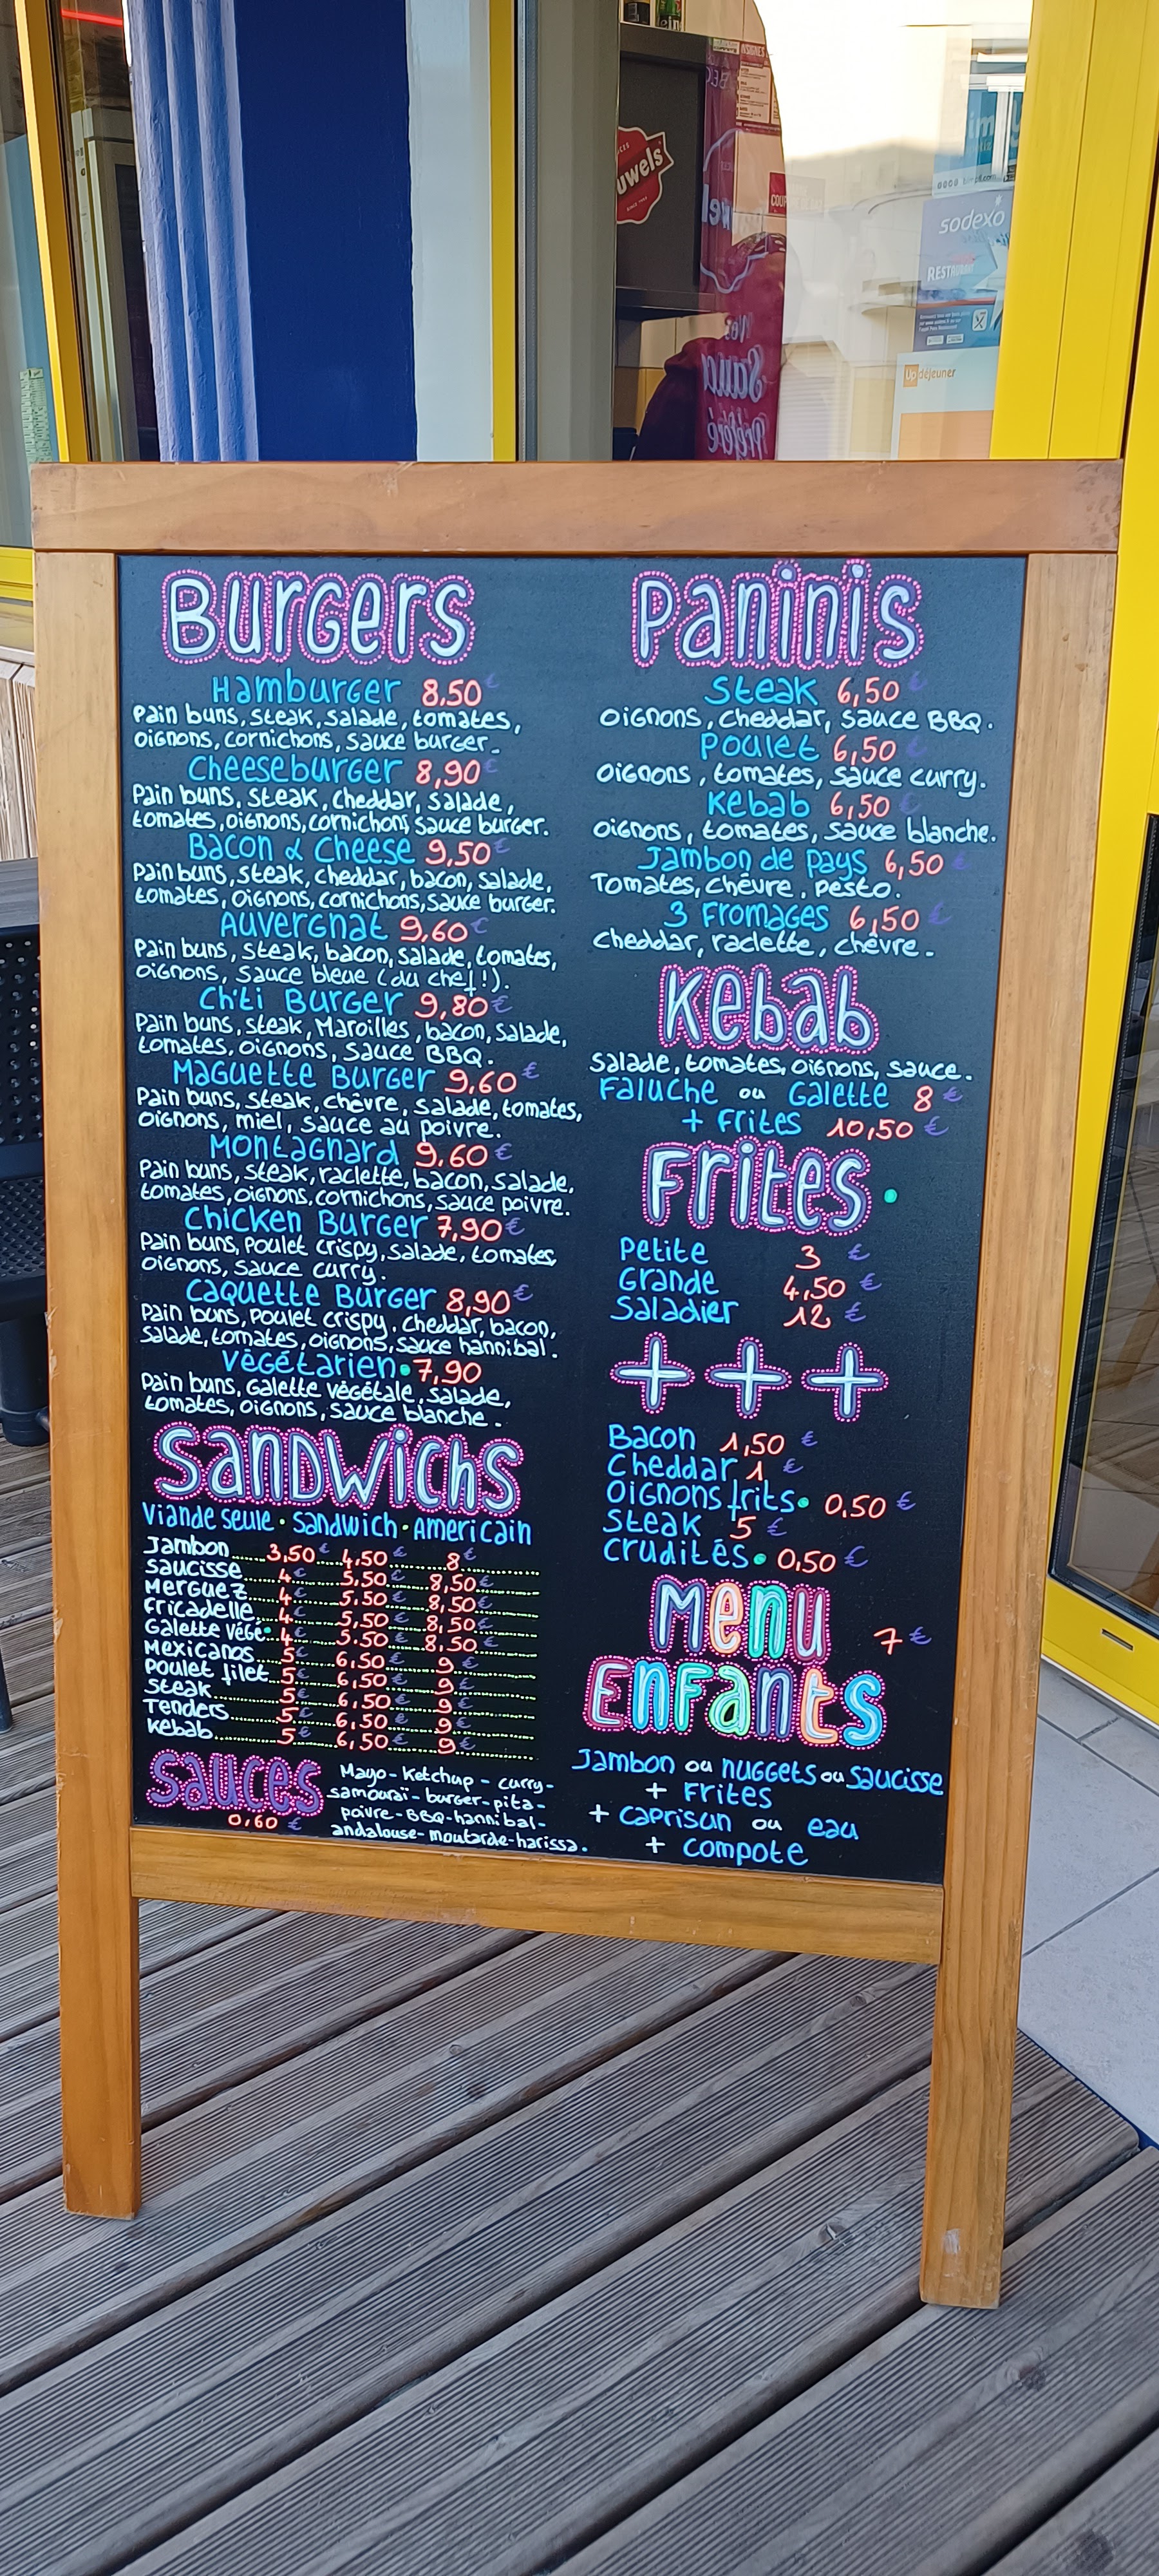 uwels
SINCE
COUP
sodexo
RESTAURANT
Up déjeuner
Nos
Sauc
Préféré
Burgers
Hamburger 8,50 €
Pain buns, steak, salade, tomates,
oignons, cornichons, sauce burger.
Cheeseburger 8,90 €
Pain buns, steak, cheddar, salade,
tomates, oignons, cornichons, sauce burger.
Bacon & Cheese 9,50 €
Pain buns, steak, cheddar, bacon, salade,
tomates, oignons, cornichons, sauce burger.
Auvergnat 9,60 €
Pain buns, steak, bacon, salade, tomates,
oignons, sauce bleue (du chef!).
Ch'ti Burger 9,80 €
Pain buns, steak, Maroilles, bacon, salade,
tomates, oignons, sauce BBQ.
Maguette Burger 9,60 €
Pain buns, steak, chèvre, salade, tomates,
oignons, miel, sauce au poivre.
Montagnard 9,60 €
Pain buns, steak, raclette, bacon, salade,
tomates, oignons, cornichons, sauce poivre.
Chicken Burger 7,90 €
Pain buns, poulet crispy, salade, tomates,
oignons, sauce curry.
Caquette Burger 8,90 €
Pain buns, poulet crispy, cheddar, bacon,
salade, tomates, oignons, sauce hannibal.
Végétarien • 7,90
Pain buns, galette végétale, salade,
tomates, oignons, sauce blanche.
Sandwichs
Viande seule • Sandwich • Americain
Jambon 3,50 € 4,50 € 8 €
Saucisse 4 € 5,50 € 8,50 €
Merguez 4 € 5,50 € 8,50 €
Fricadelle 4 € 5,50 € 8,50 €
Galette Végé • 4 € 5,50 € 8,50 €
Mexicanos 5 € 6,50 € 9 €
Poulet filet 5 € 6,50 € 9 €
Steak 5 € 6,50 € 9 €
Tenders 5 € 6,50 € 9 €
Kebab 5 € 6,50 € 9 €
Sauces
0,60 €
Mayo - Ketchup - curry -
samouraï - burger - pita -
poivre - BBQ - hannibal -
andalouse - moutarde - harissa.
Paninis
Steak 6,50 €
Oignons, cheddar, sauce BBQ.
Poulet 6,50 €
Oignons, tomates, sauce curry.
Kebab 6,50 €
Oignons, tomates, sauce blanche.
Jambon de pays 6,50 €
Tomates, chèvre, pesto.
3 Fromages 6,50 €
Cheddar, raclette, chèvre.
Kebab
Salade, tomates, oignons, sauce.
Faluche ou Galette 8 €
+ Frites 10,50 €
Frites •
Petite 3 €
Grande 4,50 €
Saladier 12 €
+ + +
Bacon 1,50 €
Cheddar 1 €
Oignons frits • 0,50 €
Steak 5 €
Crudités • 0,50 €
Menu
7 €
Enfants
Jambon ou nuggets ou saucisse
+ Frites
+ caprisun ou eau
+ compote